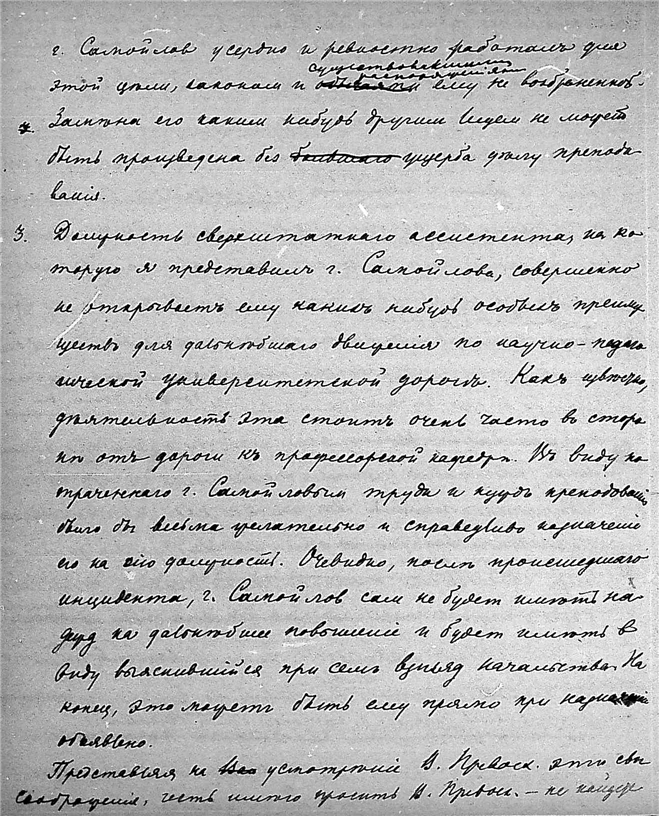 г. Самойлов усердно и ревностно работалъ для
существовавшими
распоряженіями
этой цѣли, законами и ему не возбраненной.
Замѣна его какимъ нибудь другимъ лицем не можетъ
быть произведена без бывшаго ущерба дѣлу препода
ванія.
3. Должность сверхштатнаго ассистента, на ко
торую я представилъ г. Самойлова, совершенно
не открываетъ ему какихъ нибудь особыхъ преиму
ществъ для дальнѣйшаго движенія по научно-педаго
гической университетской дорогѣ. Какъ извѣстно,
дѣятельность эта стоитъ очень часто в сторо
нѣ отъ дороги къ профессорской кафедрѣ. Въ виду по
траченнаго г. Самойловым труда и нуждъ преподованія
было бы весьма желательно и справедливо назначеніе
его на сію должность. Очевидно, послѣ происшедшаго
инцидента, г. Самойлов сам не будет имѣть на
дежд на дальнѣйшее повышеніе и будет имѣть в
виду выяснившійся при семъ взгляд начальства. На
конец, это можетъ быть ему прямо при назначеніи
объявлено.
Представляя на усмотрѣніе В. Превосх. эти сви
соображенія, честь имѣю просить В. Превосх. – не найдете